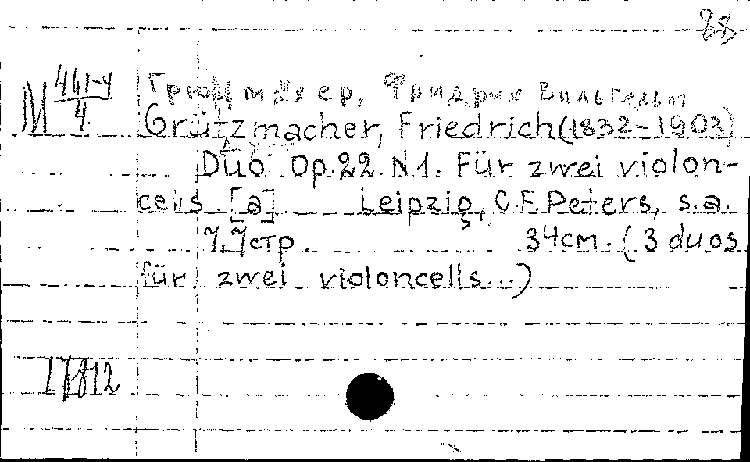 28
М 441-4
4
Грюцмахер, Фридрих Вильгельм
Grützmacher, Friedrich (1832-1903)
Duo Op.22 N1. Für zwei violon-
cells [a] Leipzig, C.F. Peters, s.a.
7,7 стр. 34 cm. (3 duos
für zwei violoncells...)
17812